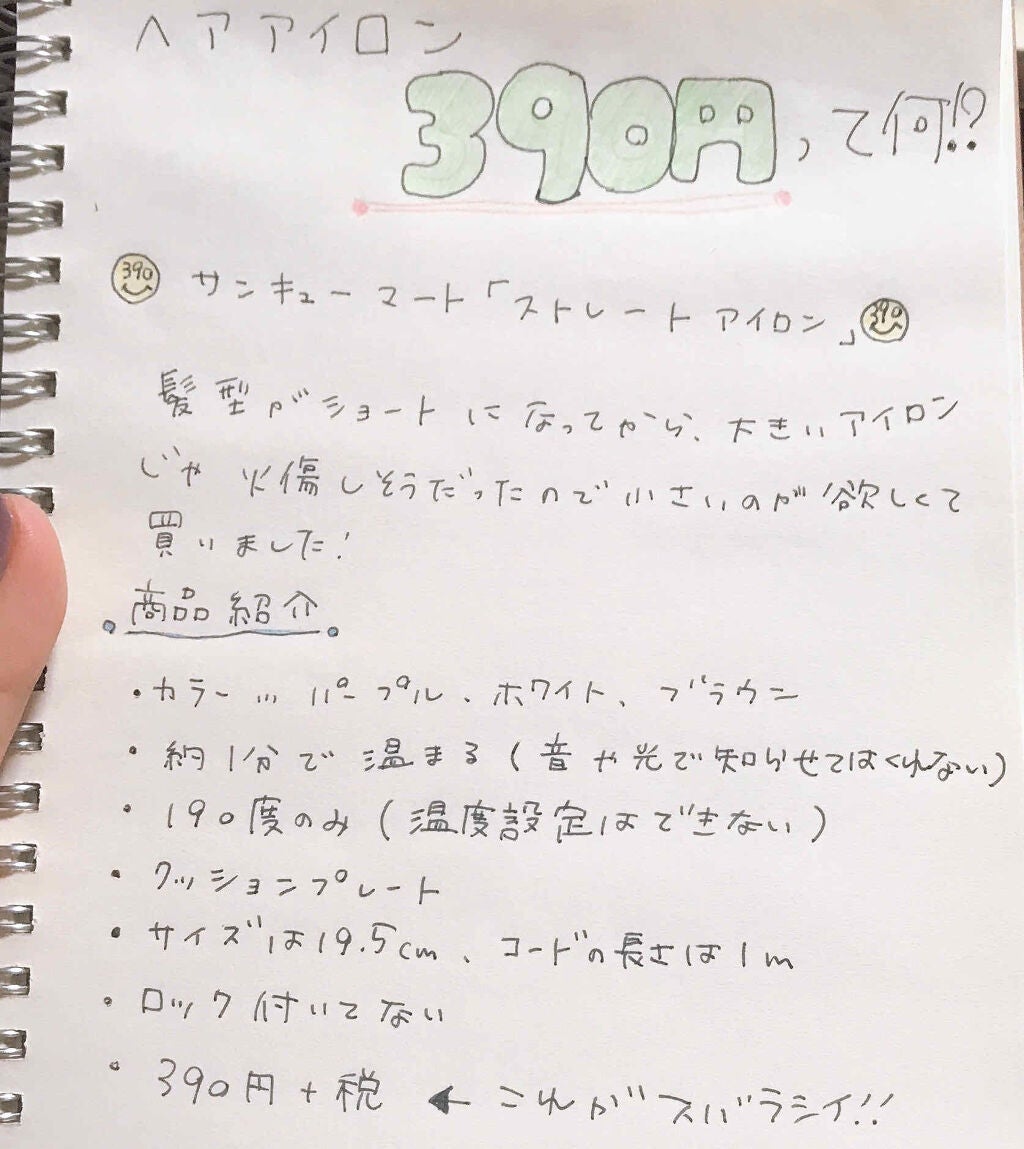 ヘアアイロン
390円って何!?
390 サンキューマート「ストレートアイロン」390
髪型がショートになってから、大きいアイロン
じゃ火傷しそうだったので小さいのが欲しくて
買いました!
商品紹介
・カラー…パープル、ホワイト、ブラウン
・約1分で温まる(音や光で知らせてはくれない)
・190度のみ(温度設定はできない)
・クッションプレート
・サイズは19.5cm、コードの長さは1m
・ロック付いてない
・390円+税 ← これがスバラシイ!!